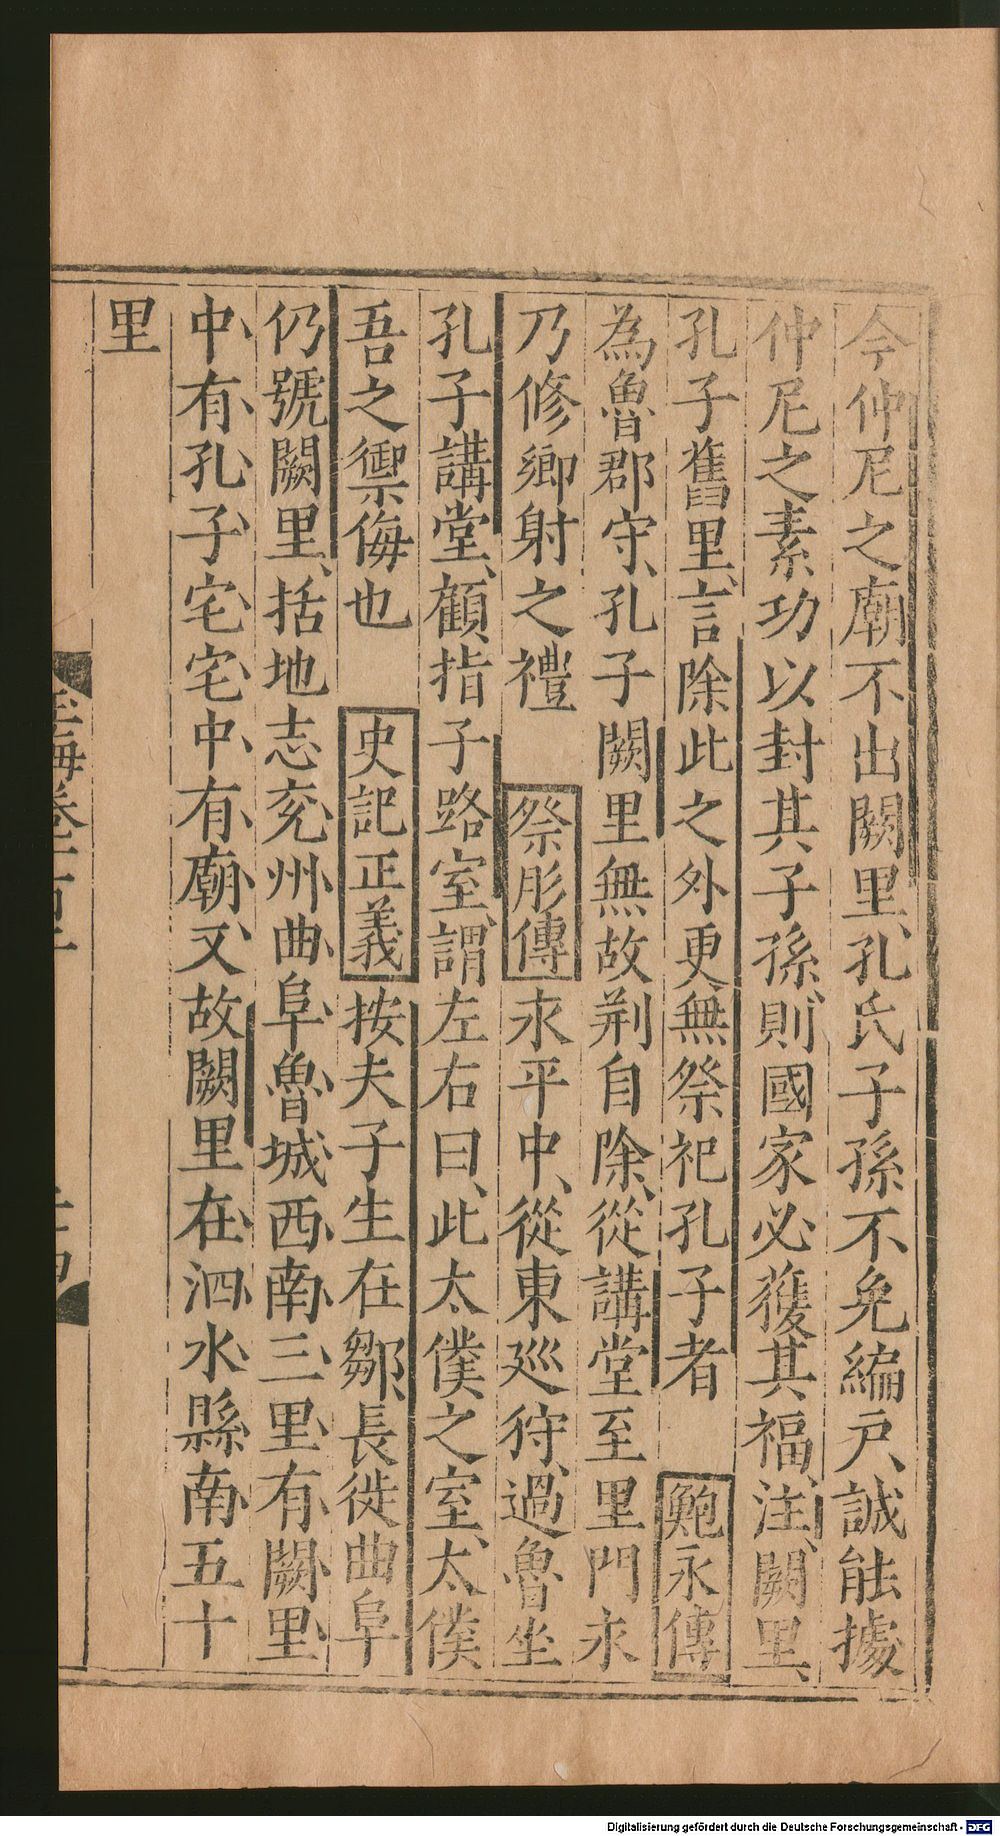 今仲尼之廟不出闕里、孔氏子孫不免編戶、誠能據
仲尼之素功以封其子孫、則國家必獲其福、注、闕里、
孔子舊里、言除此之外更無祭祀孔子者　鮑永傳
為魯郡守、孔子闕里無故荆自除、從講堂至里門永
乃修鄉射之禮　祭肜傳　永平中、從東廵狩、過魯坐
孔子講堂、顧指子路室、謂左右曰、此太僕之室、太僕
吾之禦侮也　史記正義　按夫子生在鄒、長徙曲阜
仍號闕里、括地志兖州曲阜魯城西南三里有闕里
中有孔子宅宅中有廟又故闕里在泗水縣南五十
里
玉海卷一百十
Digitalisierung gefördert durch die Deutsche Forschungsgemeinschaft - DFG